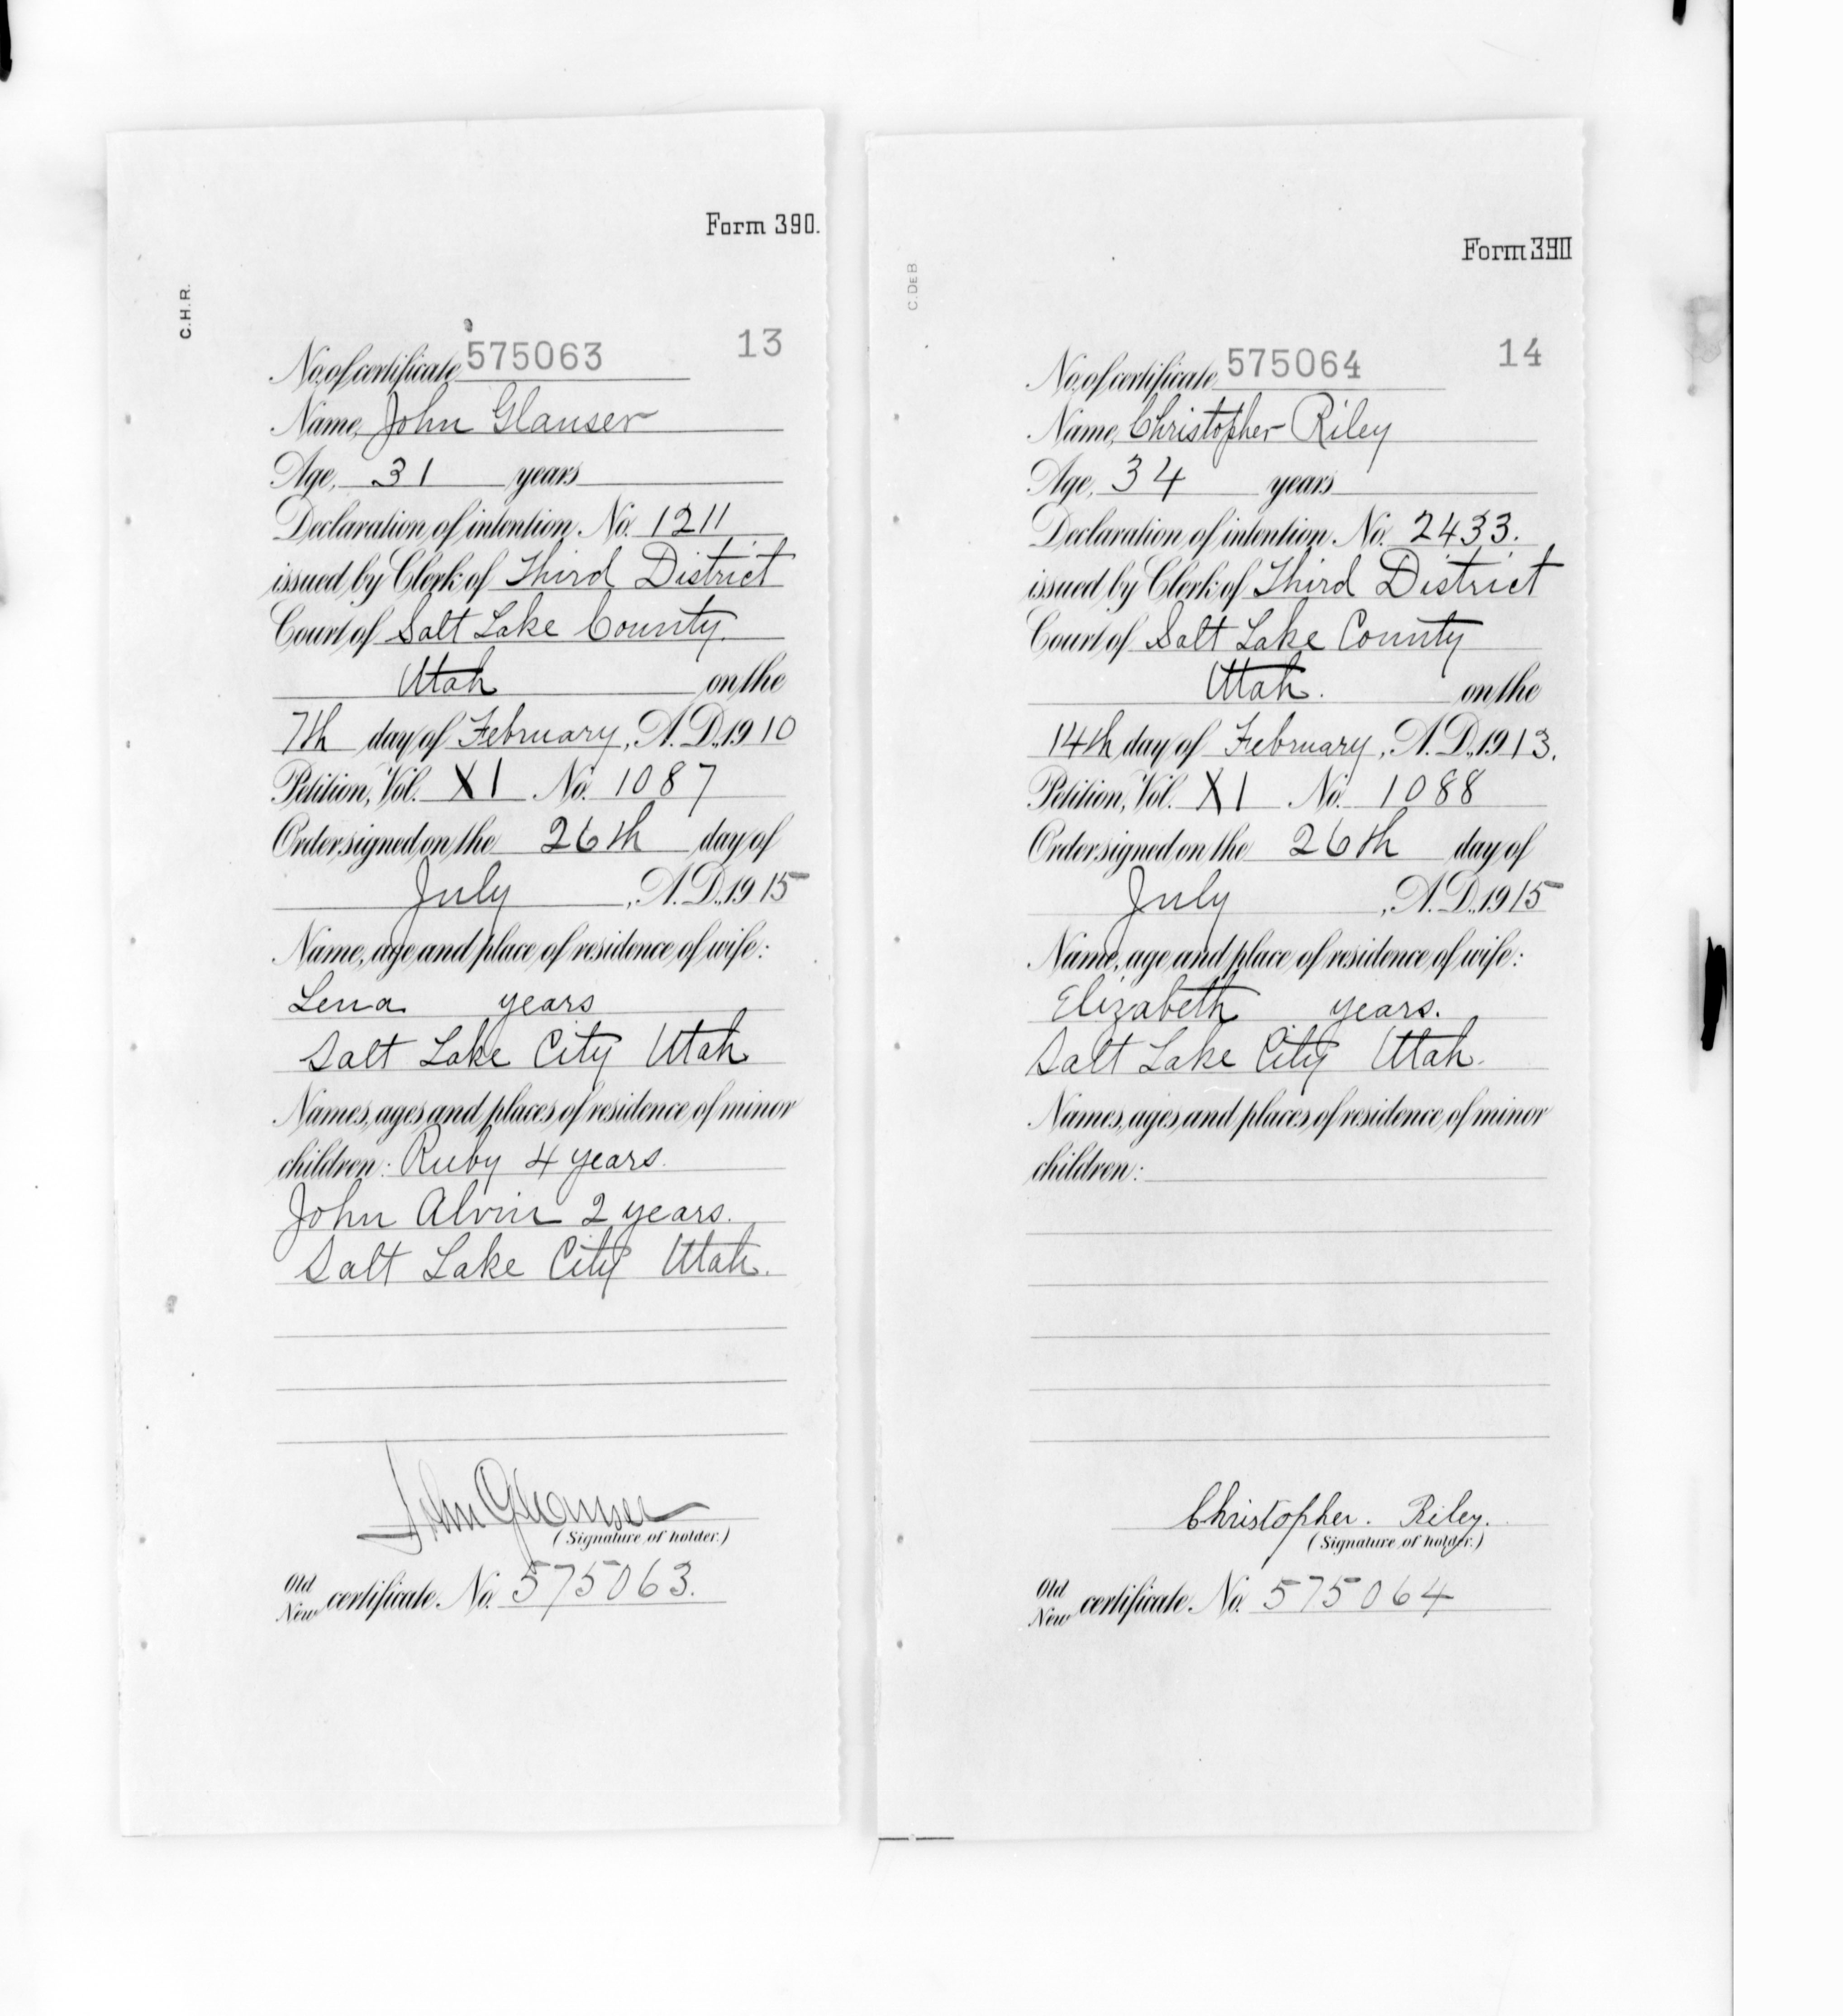 Form 390.
C.H.R.
13
No. of certificate 575063
Name, John Glauser
Age, 31 years
Declaration of intention, No. 1211
issued by Clerk of Third District
Court of Salt Lake County.
Utah on the
7th day of February, A.D., 1910
Petition, Vol. XI No. 1087
Order signed on the 26th day of
July, A.D., 1915
Name, age and place of residence of wife:
Lena years
Salt Lake City Utah
Names, ages and places of residence of minor
children: Ruby 4 years.
John Alvin 2 years.
Salt Lake City Utah.
John Glauser
(Signature of holder.)
Old
New certificate, No. 575063.
Form 390
C.DeB
14
No. of certificate 575064
Name, Christopher Riley
Age, 34 years
Declaration of intention, No. 2433.
issued by Clerk of Third District
Court of Salt Lake County
Utah. on the
14th day of February, A.D., 1913.
Petition, Vol. XI No. 1088
Order signed on the 26th day of
July, A.D., 1915
Name, age and place of residence of wife:
Elizabeth years.
Salt Lake City Utah.
Names, ages and places of residence of minor
children:
Christopher. Riley.
(Signature of holder.)
Old
New certificate, No. 575064